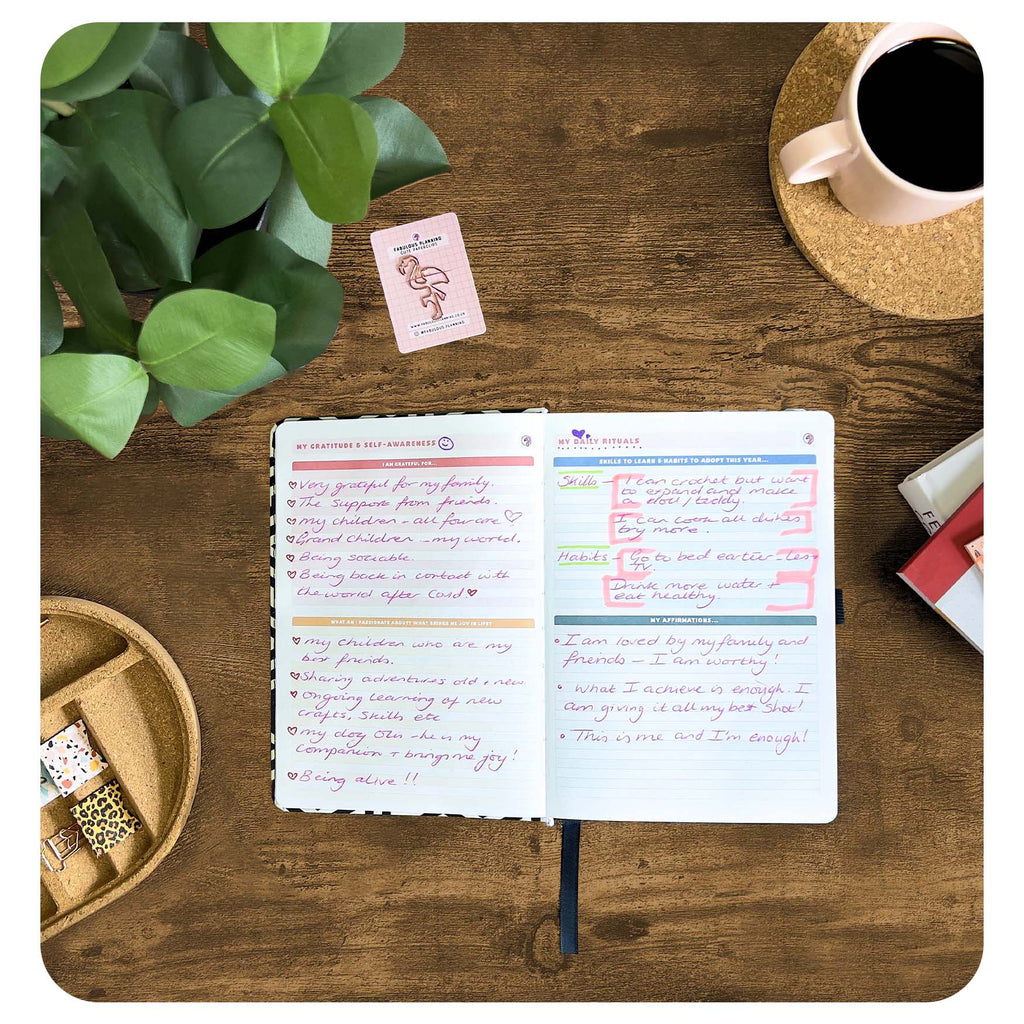 FABULOUS PLANNING
CUTE PAPERCLIPS
WWW.FABULOUSPLANNING.CO.UK
@FABULOUS.PLANNING
MY GRATITUDE & SELF-AWARENESS
I AM GRATEFUL FOR...
Very grateful for my family.
The support from friends.
my children - all four are
Grand children - my world.
Being sociable.
Being back in contact with
the world after Covid
WHAT AM I PASSIONATE ABOUT? WHAT BRINGS ME JOY IN LIFE?
my children who are my
best friends.
Sharing adventures old + new
ongoing learning of new
crafts, skills etc
my dog - he is my
companion + brings me joy!
Being alive!!
MY DAILY RITUALS
SKILLS TO LEARN & HABITS TO ADOPT THIS YEAR...
Skills - I can crochet but want
to expand and make
a doll/teddy.
I can cook all dishes
try more.
Habits - Go to bed earlier - Less
TV.
Drink more water +
eat healthy.
MY AFFIRMATIONS...
I am loved by my family and
friends - I am worthy!
What I achieve is enough. I
am giving it all my best shot!
This is me and I'm enough!